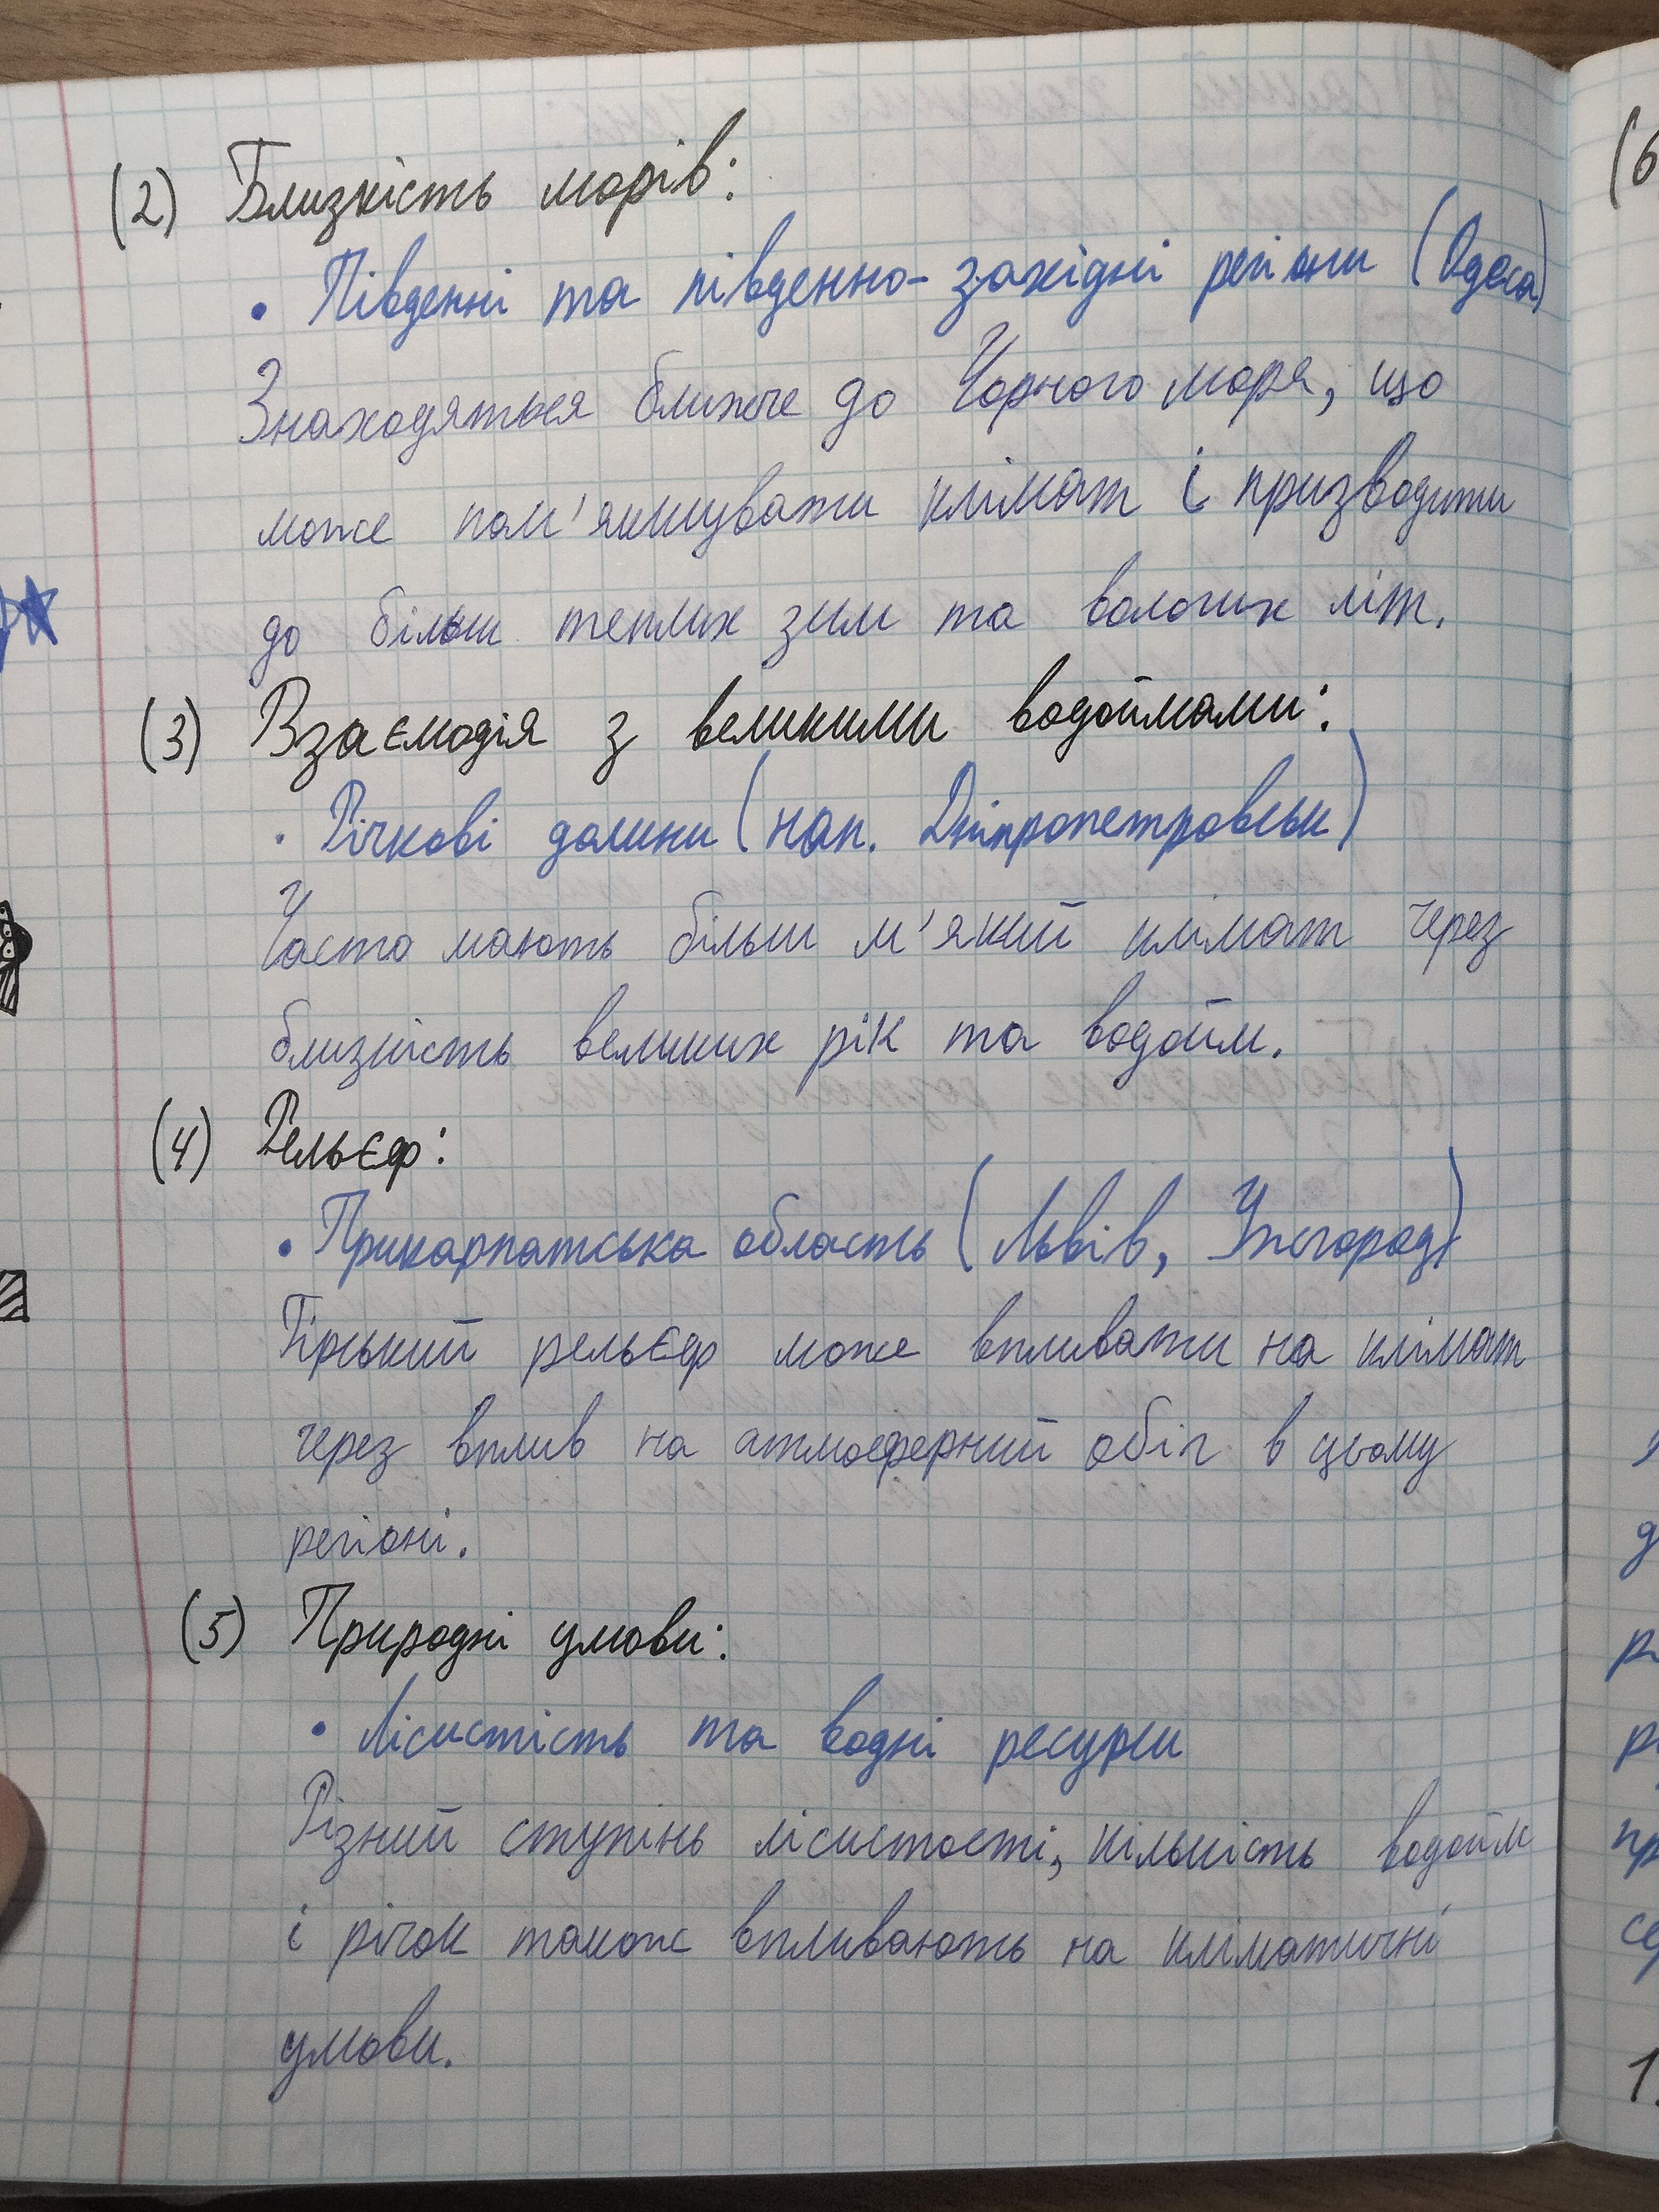 (2) Близкість морів:
• Південні та південно-західні регіони (Одеса)
Знаходяться ближче до Чорного моря, що
може пом'якшувати клімат і призводити
до більш теплих зим та вологих літ.
(3) Взаємодія з великими водоймами:
• Річкові долини (нап. Дніпропетровськ)
Часто мають більш м'який клімат через
близкість великих рік та водойм.
(4) Рельєф:
• Прикарпатська область (Львів, Ужгород)
Гірський рельєф може впливати на клімат
через вплив на атмосферний обіг в цьому
регіоні.
(5) Природні умови:
• Лісистість та водні ресурси
Різний ступінь лісистості, кількість водойм
і річок також впливають на кліматичні
умови.
(6